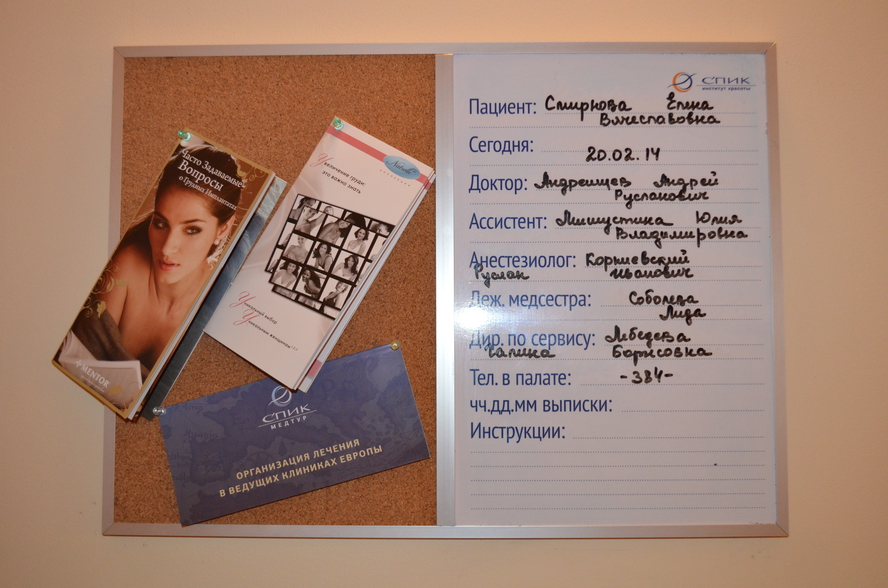 Часто Задаваемые
Вопросы
о Грудных Имплантатах
MENTOR
Увеличение груди:
это важно знать
Уникальный выбор
Уникальным женщинам...
СПИК
МЕДТУР
ОРГАНИЗАЦИЯ ЛЕЧЕНИЯ
В ВЕДУЩИХ КЛИНИКАХ ЕВРОПЫ
СПИК
институт красоты
Пациент: Смирнова Елена
Вячеславовна
Сегодня:
20.02.14
Доктор: Андреищев Андрей
Русланович
Ассистент: Мишустина Юлия
Владимировна
Анестезиолог: Корниевский
Руслан Иванович
Деж. медсестра: Соболева
Лида
Дир. по сервису: Лебедева
Галина Борисовна
Тел. в палате: -384-
чч.дд.мм выписки:
Инструкции: